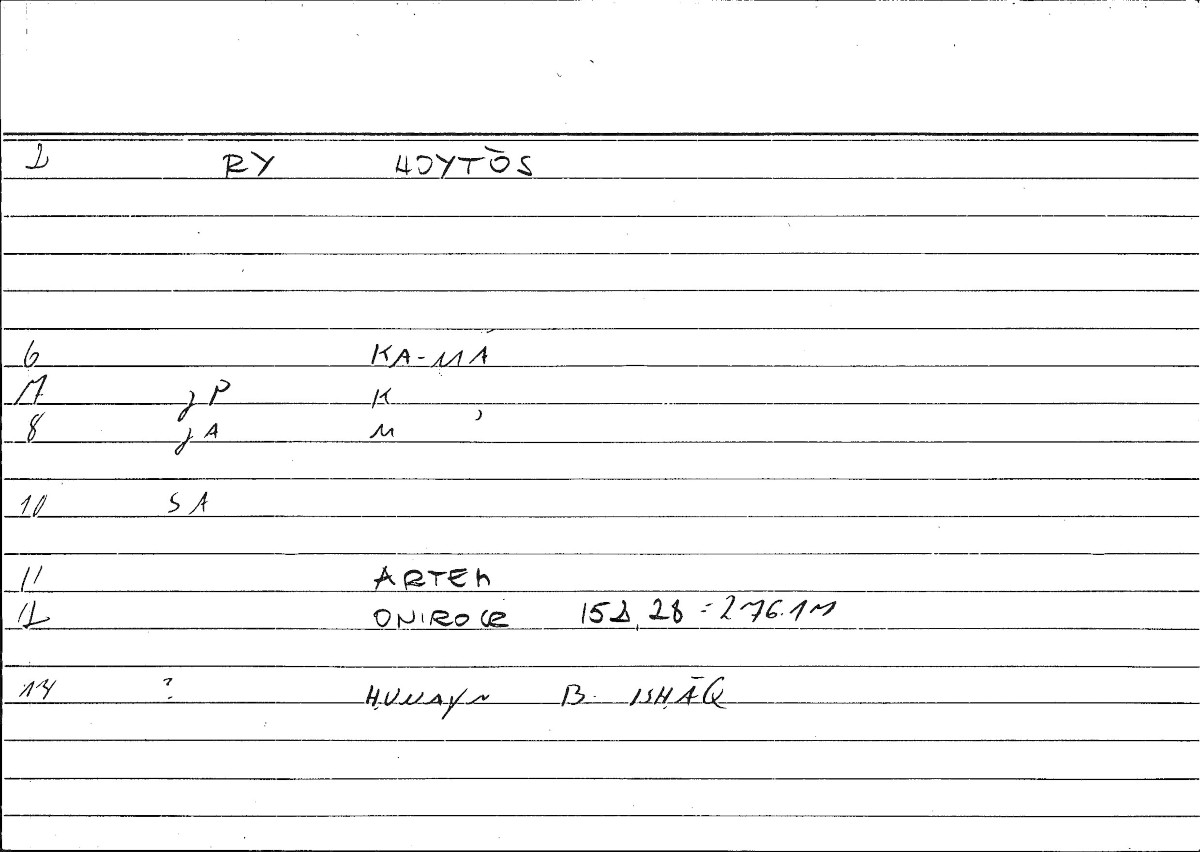 2 RY HOYTŌS
6 KA-MĀ
7 jP K
8 jA M
10 SA
11 ARTEM
12 ONIROCR 152,28 = 276.17
14 ? ḤUNAYN B. ISḤĀQ